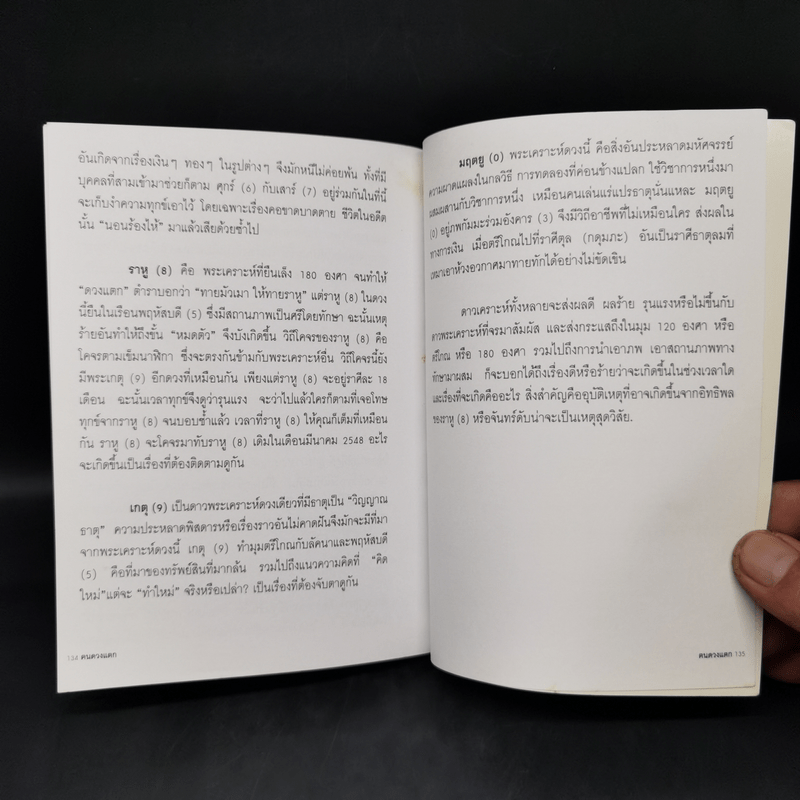 อันเกิดจากเรื่องเงินๆ ทองๆ ในรูปต่างๆ จึงมักหนีไม่ค่อยพ้น ทั้งที่มี
บุคคลที่สามเข้ามาช่วยก็ตาม ศุกร์ (6) กับเสาร์ (7) อยู่ร่วมกันในที่นี้
จะเก็บงำความทุกข์เอาไว้ โดยเฉพาะเรื่องคอขาดบาดตาย ชีวิตในอดีต
นั้น "นอนร้องไห้" มาแล้วเสียด้วยซ้ำไป
ราหู (8) คือ พระเคราะห์ที่ยืนเล็ง 180 องศา จนทำให้
"ดวงแตก" ตำราบอกว่า "ทายมัวเมา ให้ทายราหู" แต่ราหู (8) ในดวง
นี้ยืนในเรือนพฤหัสบดี (5) ซึ่งมีสถานภาพเป็นศรีโดยทักษา ฉะนั้นเหตุ
ร้ายอันทำให้ถึงขั้น "หมดตัว" จึงบังเกิดขึ้น วิถีโคจรของราหู (8) คือ
โคจรตามเข็มนาฬิกา ซึ่งจะตรงกันข้ามกับพระเคราะห์อื่น วิถีโคจรนี้ยัง
มีพระเกตุ (9) อีกดวงที่เหมือนกัน เพียงแต่ราหู (8) จะอยู่ราศีละ 18
เดือน ฉะนั้นเวลาทุกข์จึงดูว่ารุนแรง จะว่าไปแล้วใครก็ตามที่เจอโทษ
ทุกข์จากราหู (8) จนบอบช้ำแล้ว เวลาที่ราหู (8) ให้คุณก็เต็มที่เหมือน
กัน ราหู (8) จะโคจรมาทับราหู (8) เดิมในเดือนมีนาคม 2548 อะไร
จะเกิดขึ้นเป็นเรื่องที่ต้องติดตามดูกัน
เกตุ (9) เป็นดาวพระเคราะห์ดวงเดียวที่มีธาตุเป็น "วิญญาณ
ธาตุ" ความประหลาดพิสดารหรือเรื่องราวอันไม่คาดฝันจึงมักจะมีที่มา
จากพระเคราะห์ดวงนี้ เกตุ (9) ทำมุมตรีโกณกับลัคนาและพฤหัสบดี
(5) คือที่มาของทรัพย์สินที่มากล้น รวมไปถึงแนวความคิดที่ "คิด
ใหม่"แต่จะ "ทำใหม่" จริงหรือเปล่า? เป็นเรื่องที่ต้องจับตาดูกัน
134 คนดวงแตก
มฤตยู (0) พระเคราะห์ดวงนี้ คือสิ่งอันประหลาดมหัศจรรย์
ความผาดแผลงในกลวิธี การทดลองที่ค่อนข้างแปลก ใช้วิชาการหนึ่งมา
ผสมผสานกับวิชาการหนึ่ง เหมือนคนเล่นแร่แปรธาตุนั่นแหละ มฤตยู
(0) อยู่ภพกัมมะร่วมอังคาร (3) จึงมีวิถีอาชีพที่ไม่เหมือนใคร ส่งผลใน
ทางการเงิน เมื่อตรีโกณไปที่ราศีตุล (กดุมภะ) อันเป็นราศีธาตุลมที่
เหมาเอาห้วงอวกาศมาทายทักได้อย่างไม่ขัดเขิน
ดาวเคราะห์ทั้งหลายจะส่งผลดี ผลร้าย รุนแรงหรือไม่ขึ้นกับ
ดาวพระเคราะห์ที่จรมาสัมผัส และส่งกระแสถึงในมุม 120 องศา หรือ
ตรีโกณ หรือ 180 องศา รวมไปถึงการนำเอาภพ เอาสถานภาพทาง
ทักษามาผสม ก็จะบอกได้ถึงเรื่องดีหรือร้ายว่าจะเกิดขึ้นในช่วงเวลาใด
และเรื่องที่จะเกิดคืออะไร สิ่งสำคัญคืออุบัติเหตุที่อาจเกิดขึ้นจากอิทธิพล
ของราหู (8) หรือจันทร์ดับน่าจะเป็นเหตุสุดวิสัย.
คนดวงแตก 135